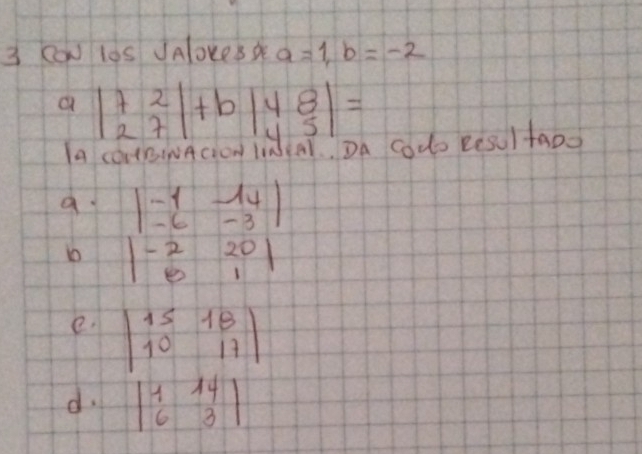 3 CON los VAlores de a = 1, b = -2
a |7 2| + b |4 8| =
|2 7| |4 5|
la COMBINACION lineal.. DA como resultado
a. |-1 -14|
|-6 -3|
b |-2 20|
|8 1|
c. |15 18|
|10 17|
d. |1 14|
|6 3|